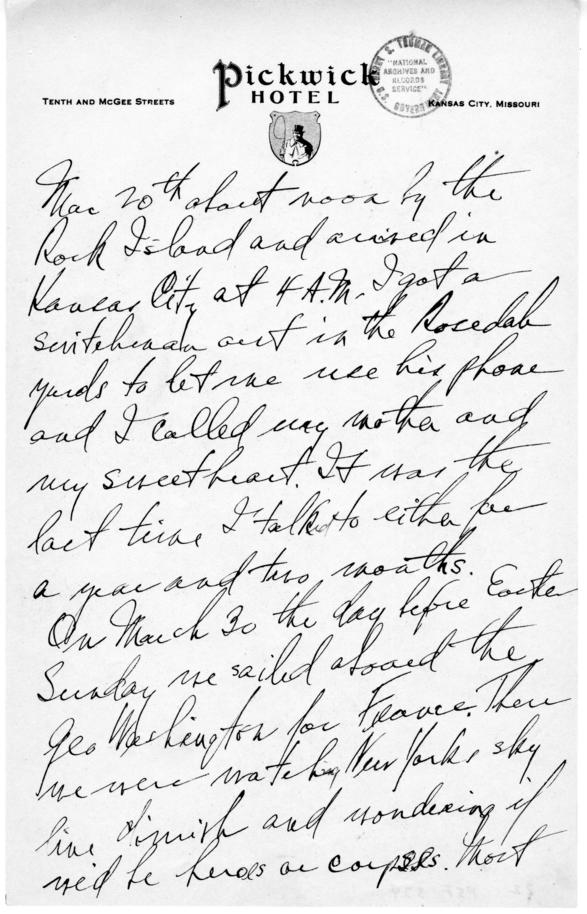 Pickwick
HOTEL
TENTH AND MCGEE STREETS
KANSAS CITY, MISSOURI
HARRY S. TRUMAN LIBRARY
"NATIONAL
ARCHIVES AND
RECORDS
SERVICE"
U.S. GOVERNMENT
Mar 20th about noon by the
Rock Island and arrived in
Kansas City at 4 A.M. I got a
switchman out in the Rosedale
yards to let me use his phone
and I called my mother and
my sweetheart. It was the
last time I talked to either for
a year and two months.
On March 30 the day before Easter
Sunday we sailed aboard the
Geo Washington for France. There
we were watching New Yorks sky
line diminish and wondering if
we'd be heros or corpses. Most